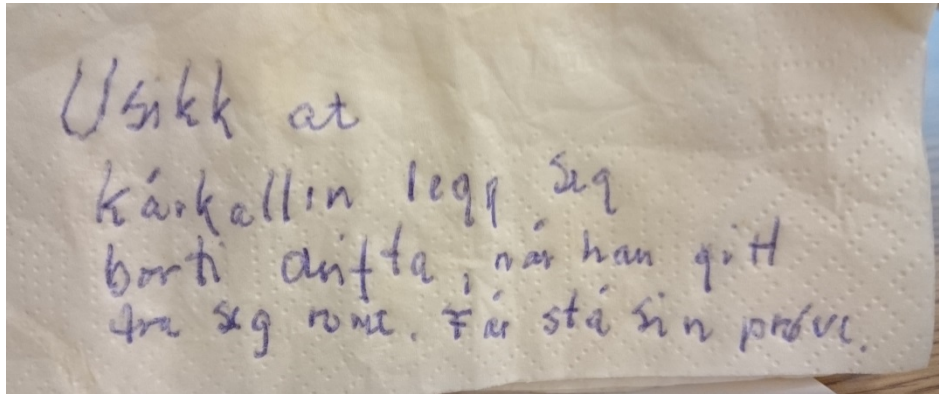 Usikk at
kårkallin legg seg
borti drifta, når han gitt
fra seg rome. Får stå sin prøve.